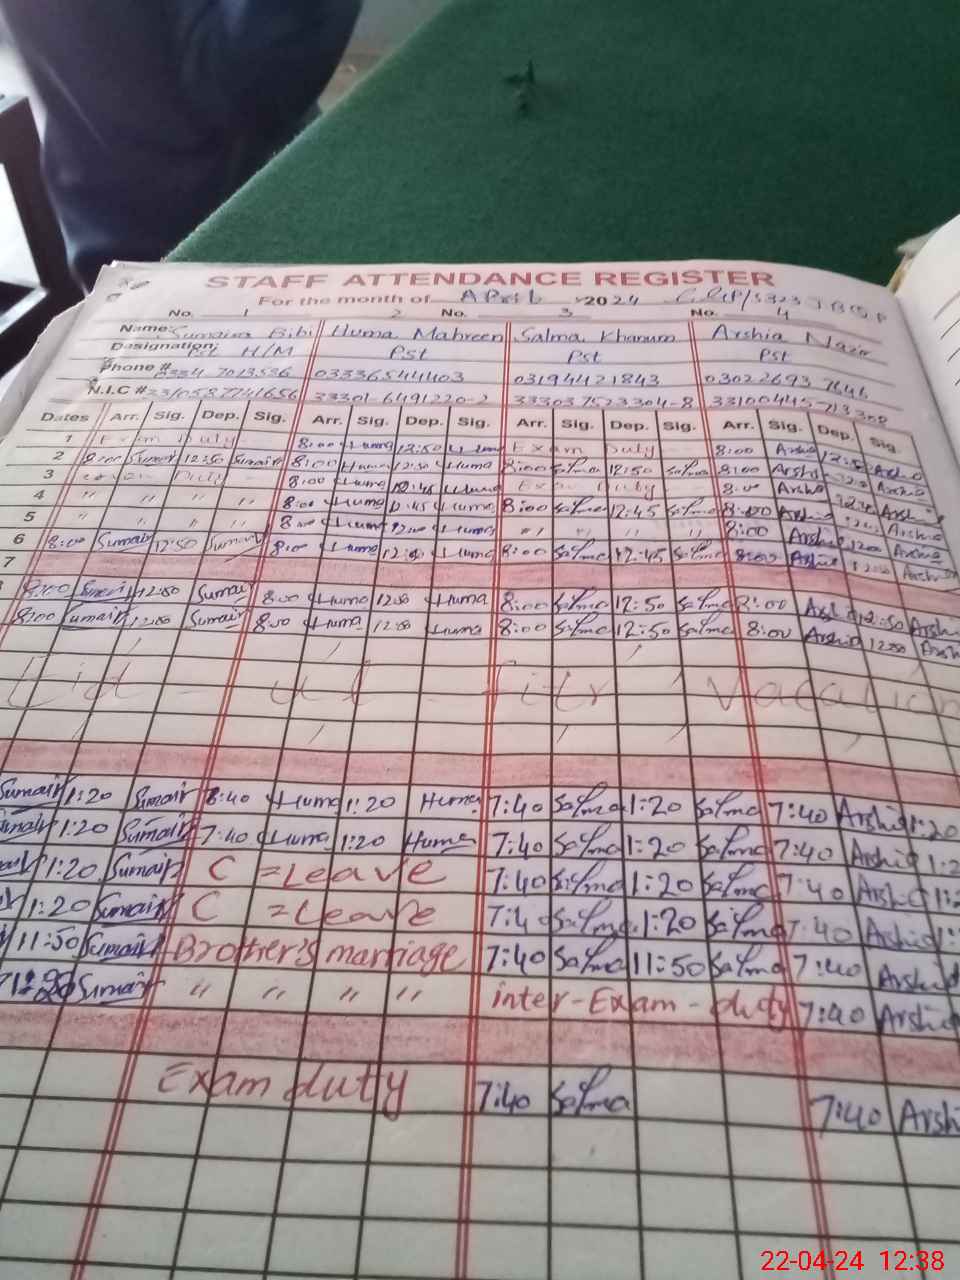 STAFF ATTENDANCE REGISTER
For the month of April 2024
No. 1 2 No. 3 No. 4
Name: Sumaira Bibi Huma Mahreen Salma Khanum Arshia Nazir
Designation: Pst H/M Pst Pst Pst
Phone # 0334 7013536 03336544403 03194421843 03022693
N.I.C # 33301-6491220-2 333037523304-8
Dates Arr. Sig. Dep. Sig. Arr. Sig. Dep. Sig. Arr. Sig. Dep. Sig. Arr. Sig. Dep. Sig.
1 Exam Duty 8:00 Huma 12:50 Huma Exam Duty 8:00 Arshia
2 8:00 Sumair 12:50 Sumair 8:00 Huma 12:50 Huma 8:00 Salma 12:50 Salma 8:00 Arshia Arshia
3 Exam Duty 8:00 Huma 12:45 Huma Exam Duty 8:00 Arshia Arshia
4 " " " " 8:00 Huma 12:45 Huma 8:00 Salma 12:45 Salma 8:00 Arshia Arshia
5 " " " " 8:00 Huma 12:00 Huma " " " 8:00 Arshia 12:00 Arshia
6 8:00 Sumair 12:50 Sumair 8:00 Huma Huma 8:00 Salma 12:45 Salma 8:00 Arshia Arshia
7
8:00 Sumair 12:50 Sumair 8:00 Huma 12:50 Huma 8:00 Salma 12:50 Salma 8:00 Arshia 12:50 Arshi
8:00 Sumair 12:50 Sumair 8:00 Huma 12:50 Huma 8:00 Salma 12:50 Salma 8:00 Arshia 12:50 Arsh
Eid - ul - fitr Vacation
Sumair 1:20 Sumair 7:40 Huma 1:20 Huma 7:40 Salma 1:20 Salma 7:40 Arshia 1:20
umair 1:20 Sumair 7:40 Huma 1:20 Huma 7:40 Salma 1:20 Salma 7:40 Arshia 1:2
1:20 Sumair C = Leave 7:40 Salma 1:20 Salma 7:40 Arshia 1:2
1:20 Sumair C = Leave 7:40 Salma 1:20 Salma 7:40 Arshia 1:
11:50 Sumair Brother's marriage 7:40 Salma 11:50 Salma 7:40 Arshia
Sumair " " " " inter-Exam-duty 7:40 Arshia
Exam duty 7:40 Salma 7:40 Arshi
22-04-24 12:38